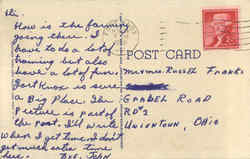 Hi.
How is the farming
going there. I
have to do a lot of
training but also
have a lot of fun.
Fort Knox is sure
a Big Place. This
Picture is part of
the post. I'll write
when I get time. I don't
get much extra time
here. John
POST CARD
Mr + Mrs. Russell Franks
Grabel Road
RD #2
Uniontown, Ohio